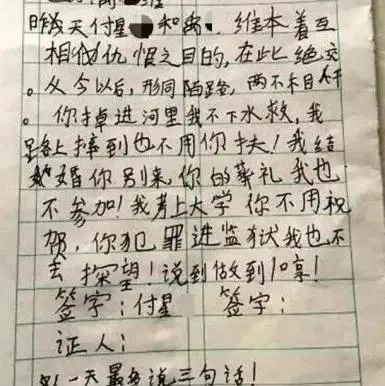 昨天付星 和禹.维本着互
相仇恨之目的,在此绝交
。从今以后,形同陌路,两不相欠
。你掉进河里我不下水救,我
路上摔到也不用你扶!我结
婚你别来,你的葬礼我也
不参加!我考上大学你不用祝
贺,你犯罪进监狱我也不
去探望!说到做到!
签字:付星 签字:
证人:
一天最多说三句话!